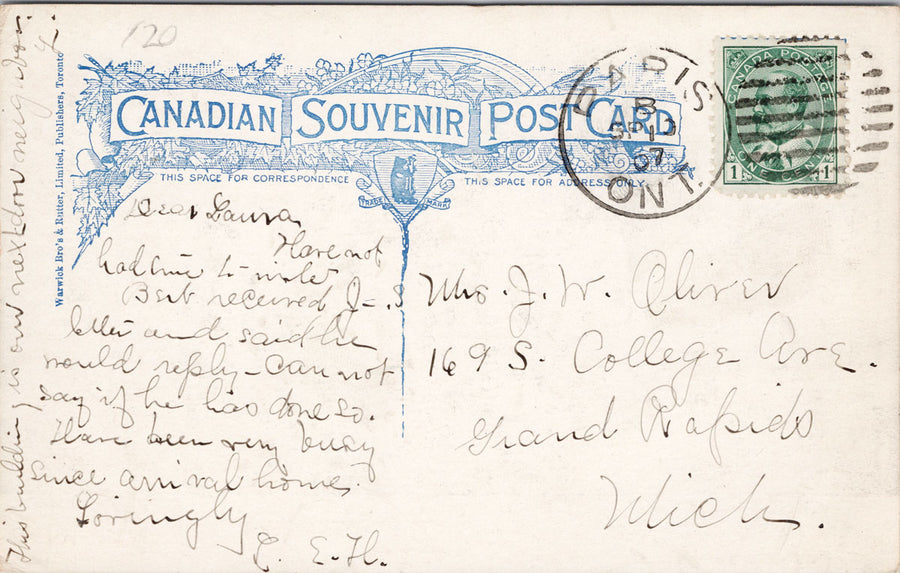 120
CANADIAN SOUVENIR POST CARD
THIS SPACE FOR CORRESPONDENCE
THIS SPACE FOR ADDRESS ONLY
TRADE MARK
Warwick Bro's & Rutter, Limited, Publishers, Toronto
PARIS
B
SP 10
07
ONT.
CANADA POSTAGE
1 ONE CENT 1
Dear Laura
Have not
had time to write
Bert received J-.S
letter and said he
would reply - Can not
say if he has done so.
Have been very busy
since arrival home.
Lovingly
E.H.
This building is our next door neighbor.
Mrs. J. W. Oliver
169 S. College Ave.
Grand Rapids
Mich.